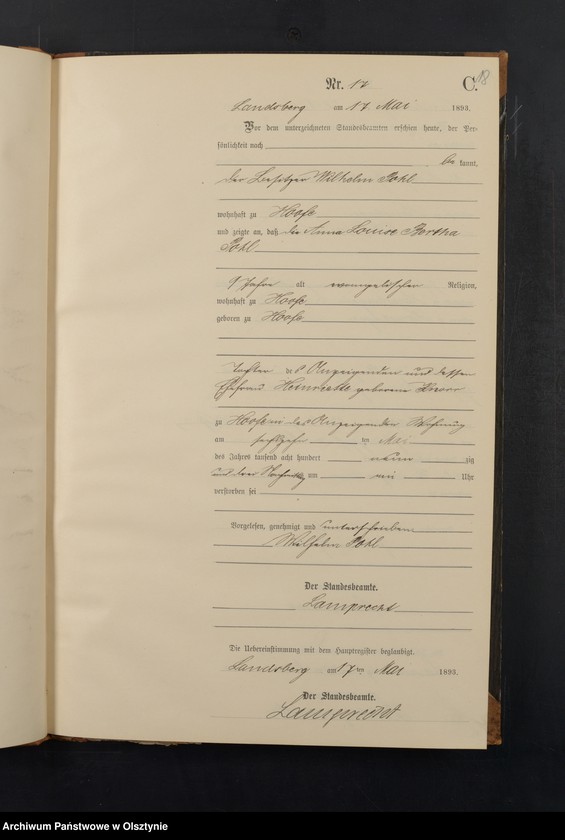 Nr. 17 C. 18
Landsberg am 17 Mai 1893.
Vor dem unterzeichneten Standesbeamten erschien heute, der Per-
sönlichkeit nach
be kannt,
der Besitzer Wilhelm Pohl
wohnhaft zu Hoofe
und zeigte an, daß die Anna Louise Bertha
Pohl
9 Jahre alt evangelischer Religion,
wohnhaft zu Hoofe
geboren zu Hoofe
Tochter des Anzeigenden und dessen
Ehefrau Henriette geborene
zu Hoofe in des Anzeigenden Wohnung
am sechszehn ten Mai
des Jahres tausend acht hundert neun zig
und drei Nachmittags um Uhr
verstorben sei
Vorgelesen, genehmigt und unterschrieben
Wilhelm Pohl
Der Standesbeamte.
Lamprecht
Die Uebereinstimmung mit dem Hauptregister beglaubigt.
Landsberg am 17 ten Mai 1893.
Der Standesbeamte.
Lamprecht
Archiwum Państwowe w Olsztynie